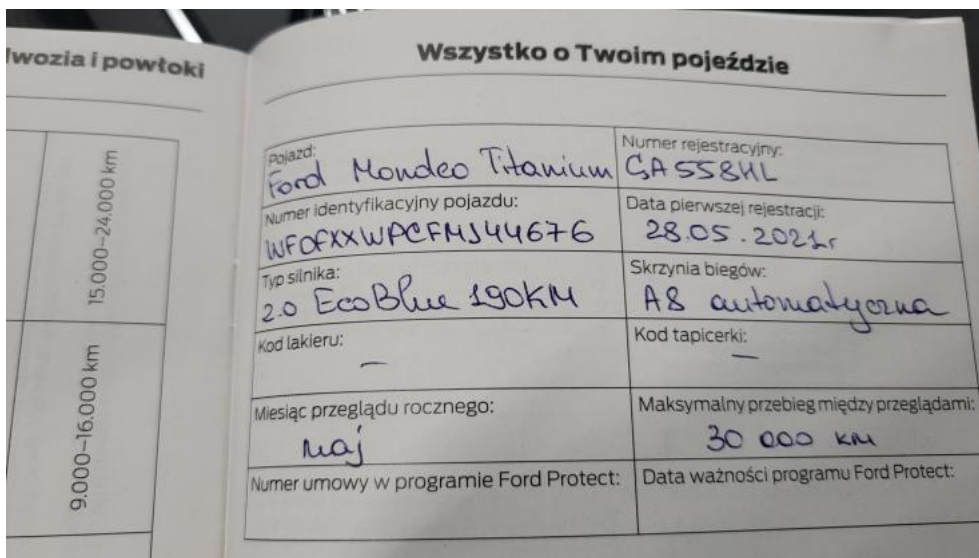 lwozia i powłoki
15.000–24.000 km
9.000–16.000 km
Wszystko o Twoim pojeździe
Pojazd:
Ford Mondeo Titanium
Numer rejestracyjny:
GA558HL
Numer identyfikacyjny pojazdu:
WF0FXXWPCFMJ44676
Data pierwszej rejestracji:
28.05.2021r
Typ silnika:
2.0 EcoBlue 190KM
Skrzynia biegów:
A8 automatyczna
Kod lakieru:
—
Kod tapicerki:
—
Miesiąc przeglądu rocznego:
maj
Maksymalny przebieg między przeglądami:
30 000 KM
Numer umowy w programie Ford Protect:
Data ważności programu Ford Protect: